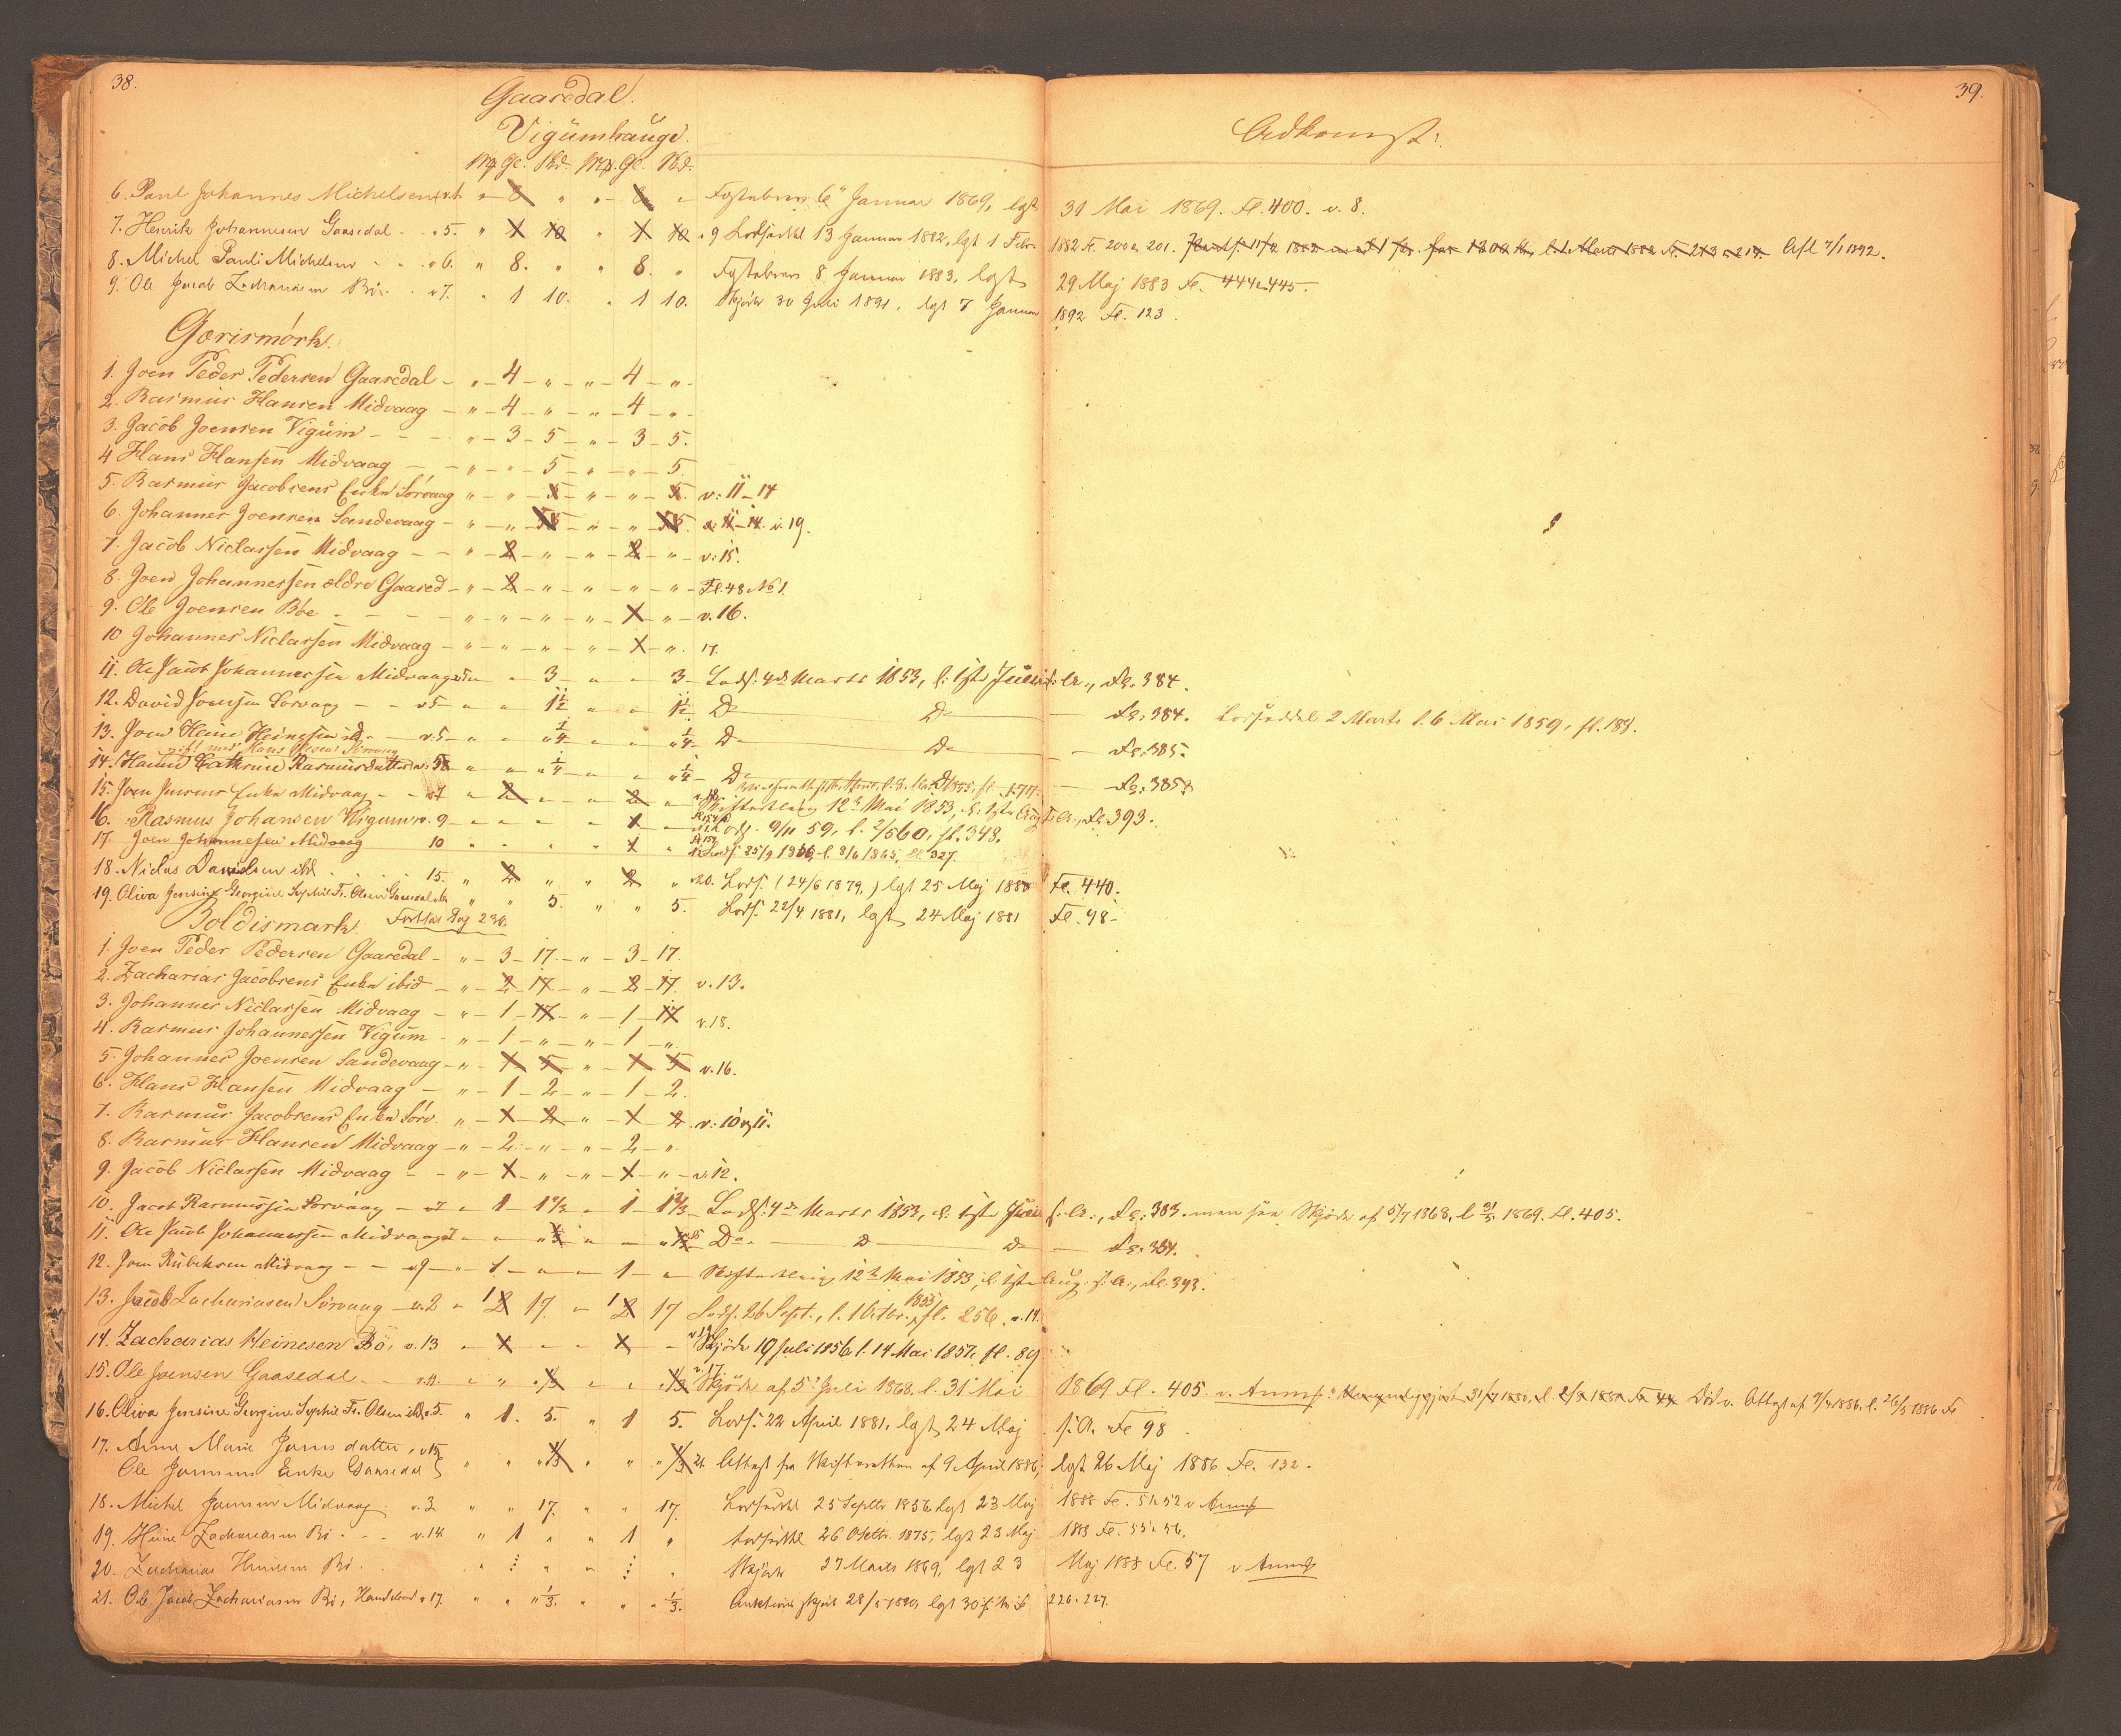 38.
39.
Gaasedal.
Vigumhauge.
Adkomst:
Mk. Gl. Skd. Mk. Gl. Skd.
6. Paul Johannes Michelsen v.1. " 8 " " 8 " Fæstebrev 6 Januar 1869, lgst 31 Mai 1869. Fl. 400. v. 8.
7. Henrik Johannesen Gaasedal . . v 5. " 1 10 " 1 10 v 9 Lodseddel 13 Januar 1882, lgt 1 Febr. 1882 Fl. 200 a 201. Afl 7/1 1892.
8. Michel Pauli Michelsen - - . v 6. " 8. " " 8. " Fæstebrev 8 Januar 1883, lgst 29 Maj 1883 Fl. 444 a 445.
9. Ole Jacob Zachariasen Bö. . v 7. " 1 10. " 1 10. Skjöde 30 Juli 1891, lgt 7 Januar 1892 Fl. 123.
Gorismörk.
1. Joen Peder Pedersen Gaasedal - " - 4 - " - " - 4 - " -
2. Rasmus Hansen Midvaag - " - 4 - " - " - 4 - " -
3. Jacob Joensen Vigum - - - " - 3 - 5 - " - 3 - 5.
4 Hans Hansen Midvaag - - " - " - 5 - " - " - 5.
5. Rasmus Jacobsens Enke Sörvaag " - " - 5 - " - " - 5. v: 11-14
6. Johannes Joensen Sandevaag - " - " - 55 - " - " 55. v: 11-14. v. 19.
7. Jacob Niclassen Midvaag - - " - 2 - " - " - 2 - " - v: 15.
8. Joen Johannessen ældre Gaased - " - 2 - " - " - " - " - Fl. 48 No 1.
9. Ole Joensen Böe - - - - " - " - " - " - 1 - " - v. 16.
10 Johannes Niclassen Midvaag - " - " - " - " - 1 - " . 17.
11. Ole Jacob Johannessen Midvaag v 5 " " 3 - " " 3 - Lods. 4de Marts 1853, l. 1ste Juni s. A., Fl. 384.
12. David Joensen Sörvaag - - v 5 - " " 1½ " " 1½ Do Do - Fl. 384. Lodseddel 2 Marts l. 6 Mai 1859, fl. 188.
13. Joen Heine Heinesen ibd. - v. 5 - " " ¼ - " " ¼ - Do Do - Fl. 385.
gift med Hans Olsen Sörvaag
14. Hanne Cathrine Rasmusdatter v: 5 " " " ¼ - " " ¼ - Do - Fl. 385
15. Joen Jensens Enke Midvaag - - v 7 - 2 - " - 2 - " Skifteudlæg 12te Mai 1853, l. 1ste Aug. s. A., Fl. 393.
16. Rasmus Johansen Vigum v. 9 - " - " " 1 - Lods. 9/11 59, l. 2/5 60, fl. 348.
17 Joen Johannesen Midvaag 10 " " " " 1 " Lods. 25/9 1866, l. 8/6 1865, Fl. 327.
18. Niclas Danielsen ibd . . . . 15. " 2 " " 2 " v 20. Lods. (24/6 1879.) lgt 25 Maj 1880 Fl. 440.
19. Oliva Jensine Georgine Sophie Fr. Olsen Gaasedal v 6 " " 5. " " 5. Lods. 22/4 1881, lgt 24 Maj 1881 Fl. 98.
Boldismark. Fortsat Pag 236.
1. Joen Peder Pedersen Gaasedal - " - 3 - 17. - " - 3 - 17.
2. Zacharias Jacobsens Enke ibid - " - 2 - 17 - " - 2 - 17 v. 13.
3. Johannes Niclassen Midvaag - " - 1 - 17. - " - 1 - 17 v. 18.
4. Rasmus Johannessen Vigum - " - 1 - " - " - 1 - "
5. Johannes Joensen Sandevaag - " - 1 - 5 - " - 1 - 5 v. 16.
6. Hans Hansen Midvaag - " - 1 - 2 - " - 1 - 2.
7. Rasmus Jacobsens Enke Sörv. " - 1 - 2 - " - 1 - 2. v: 10 og 11.
8. Rasmus Hansen Midvaag - " - 2 - " - " - 2 - "
9. Jacob Niclassen Midvaag - - " - 1 - " - " - 1 - " - v. 12.
10. Jacob Rasmussen Sörvaag - v 7 " 1 1⅔ " 1 1⅔ Lods. 4de Marts 1853, l. 1ste Juni s. A., Fl. 383. men see Skjöde af 5/7 1868, l 31/5 1869. Fl. 405.
11. Ole Jacob Johannessen Midvaag v 7 " " " ⅓ " - " ⅓ v 15 Do - D - D - Fl. 384.
12. Joen Rubeksen Midvaag - - v 9 - " 1 - " - 1 - " Skifteudlæg 12te Mai 1853, l. 1ste Aug. s. A., Fl. 393.
13. Jacob Zachariasen Sörvaag - v. 2 " 1 2 17 " 1 2 17 Lods. 26 Sept., l. 1 Octbr. 1855, fl. 256. v. 14.
14. Zacharias Heinesen Bö, v. 13 " 1 - " 1 - v 19 Skjöde 19 Juli 1856, l. 14 Mai 1857, fl. 89.
15. Ole Joensen Gaasedal . - v. 11. " " " ⅓ " " " ⅓ v. 17 Skjöde af 5 Juli 1868. l. 31 Mai 1869 Fl. 405. v. Anmk. Död v. Attest af 9/4 1886, l. 26/5 1886 Fl.
16. Oliva Jensine Georgine Sophie Fr. Olsen ibd v. 5. " 1. 5. " 1 5. Lods. 22 April 1881, lgt 24 Maj s. A. Fl 98.
17. Anne Marie Joensdatter, v 15
Ole Joensens Enke Gaasedal " " " ⅓ " " " ⅓ 21 Attest fra Skifteretten af 9 April 1886, lgt 26 Maj 1886 Fl. 132.
18. Michel Joensen Midvaag . v. 3 " " 17. " " 17. Lodseddel 25 Septbr 1856, lgt 23 Maj 1888 Fl. 51 a 52 v Anmk
19. Heine Zachariasen Bö . - - v. 14. " 1 " " 1 " Lodseddel 26 Octbr. 1875, lgt 23 Maj 1888 Fl. 55 a 56.
20. Zacharias Heinesen Bö . " " " " Skjöde 27 Marts 1869, lgt 23 Maj 1888 Fl. 57 v Anmk
21. Ole Jacob Zachariasen Bö, v 17. " " " ⅓. " " " ⅓. Auktionsskjöde 28/5 1890, lgt 30 226. 227.